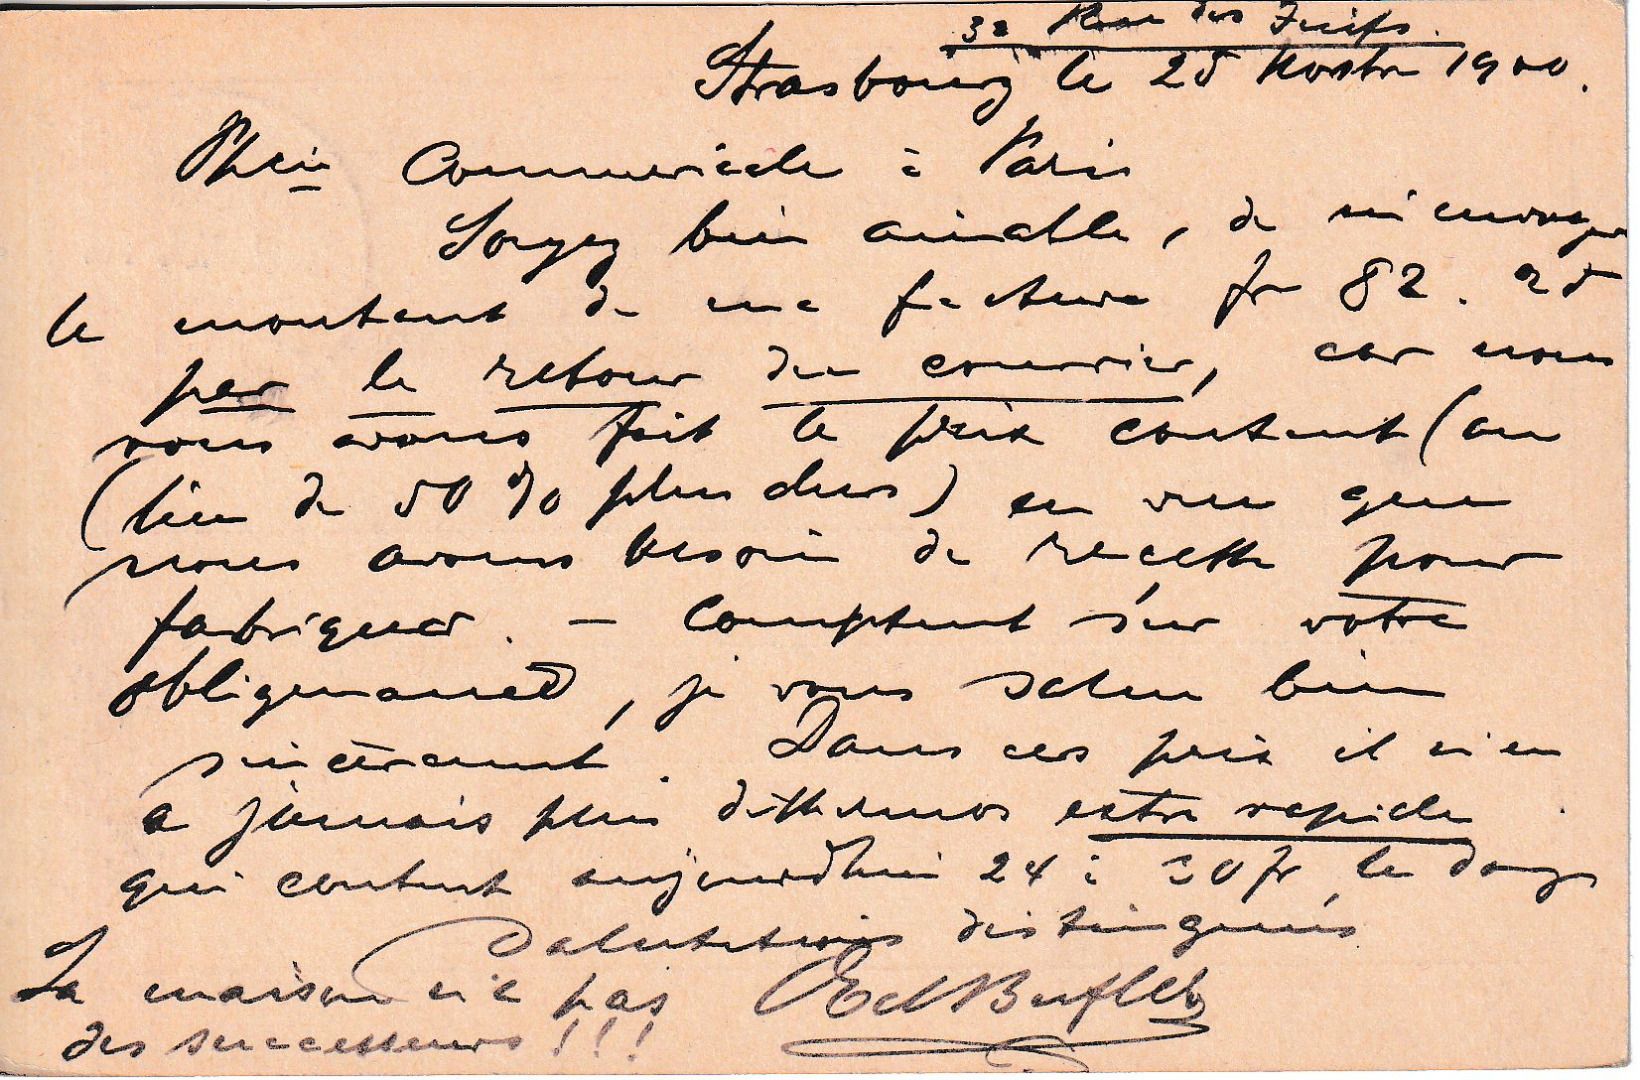 32 Rue des Juifs.
Strasbourg le 25 Novbre 1900.
Phcie Commerciale à Paris
Soyez bien aimable, de m'envoyer
le montant de ma facture fr 82.25
par le retour du courrier, car nous
vous avons fait le prix coutant (au
(lieu de 50 % plus chers) en vue que
nous avons besoin de recette pour
fabriquer. — Comptant sur votre
obligeance, je vous salue bien
sincèrement. Dans ces prix il n'en
a jamais plus extra rapide
qui coutent aujourd'hui 24 à 30 fr le
Salutations distinguées
La maison n'a pas
des successeurs !!!